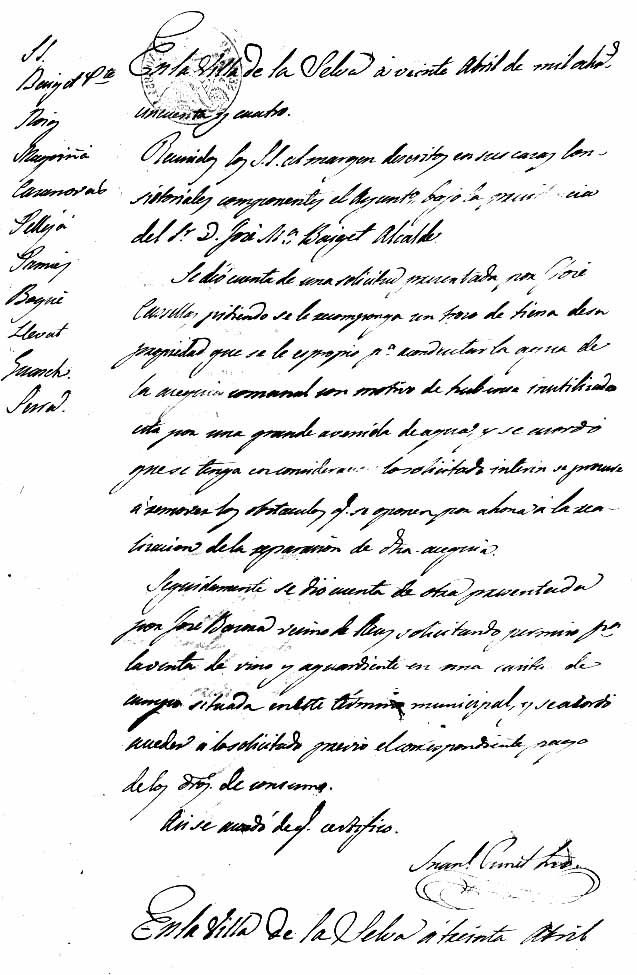 SS.
Baiget Pte
Roig
Mayriñá
Casanovas
Pellejá
Pamies
Bagué
Llevat
Guasch
Serra
En la Villa de la Selva á veinte Abril de mil ochoc.
cincuenta y cuatro.
Reunidos los SS. al margen descritos en sus casas Con-
sistoriales componentes el Ayunto. bajo la presidencia
del Sr. D. José Ma. Baiget Alcalde.
Se dió cuenta de una solicitud presentada por José
pidiendo se le recomponga un trozo de tierra de su
propiedad que se le espropio pa. conducir la agua de
la acequia comunal con motivo de haberse inutilizado
esta por una grande avenida de aguas, y se acordó
que se tenga en consideracion lo solicitado interin se procura
á remover los obstaculos q. se oponen por ahora á la rea-
lizacion de la reparacion de dha. acequia.
Seguidamente se dió cuenta de otra presentada
por José vecino de Reus solicitando permiso pa.
la venta de vino y aguardiente en una casita de
campo situada en este término municipal, y se acordó
acceder á lo solicitado previo el correspondiente pago
de los dros. de consumo.
Asi se acordó de q. certifico.
Juan Srio.
En la Villa de la Selva á treinta Abril